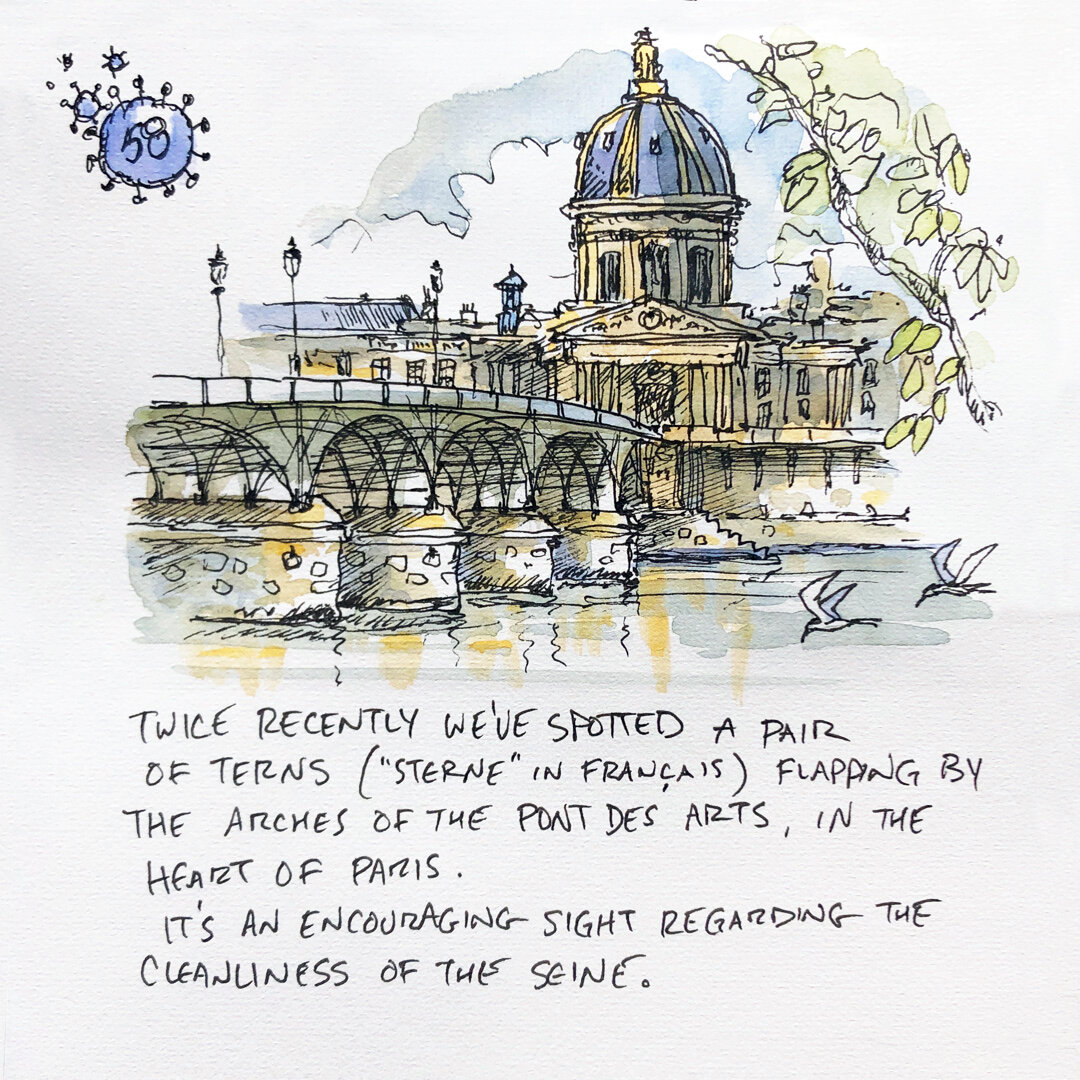 58
TWICE RECENTLY WE'VE SPOTTED A PAIR
OF TERNS ("STERNE" IN FRANÇAIS) FLAPPING BY
THE ARCHES OF THE PONT DES ARTS, IN THE
HEART OF PARIS.
IT'S AN ENCOURAGING SIGHT REGARDING THE
CLEANLINESS OF THE SEINE.